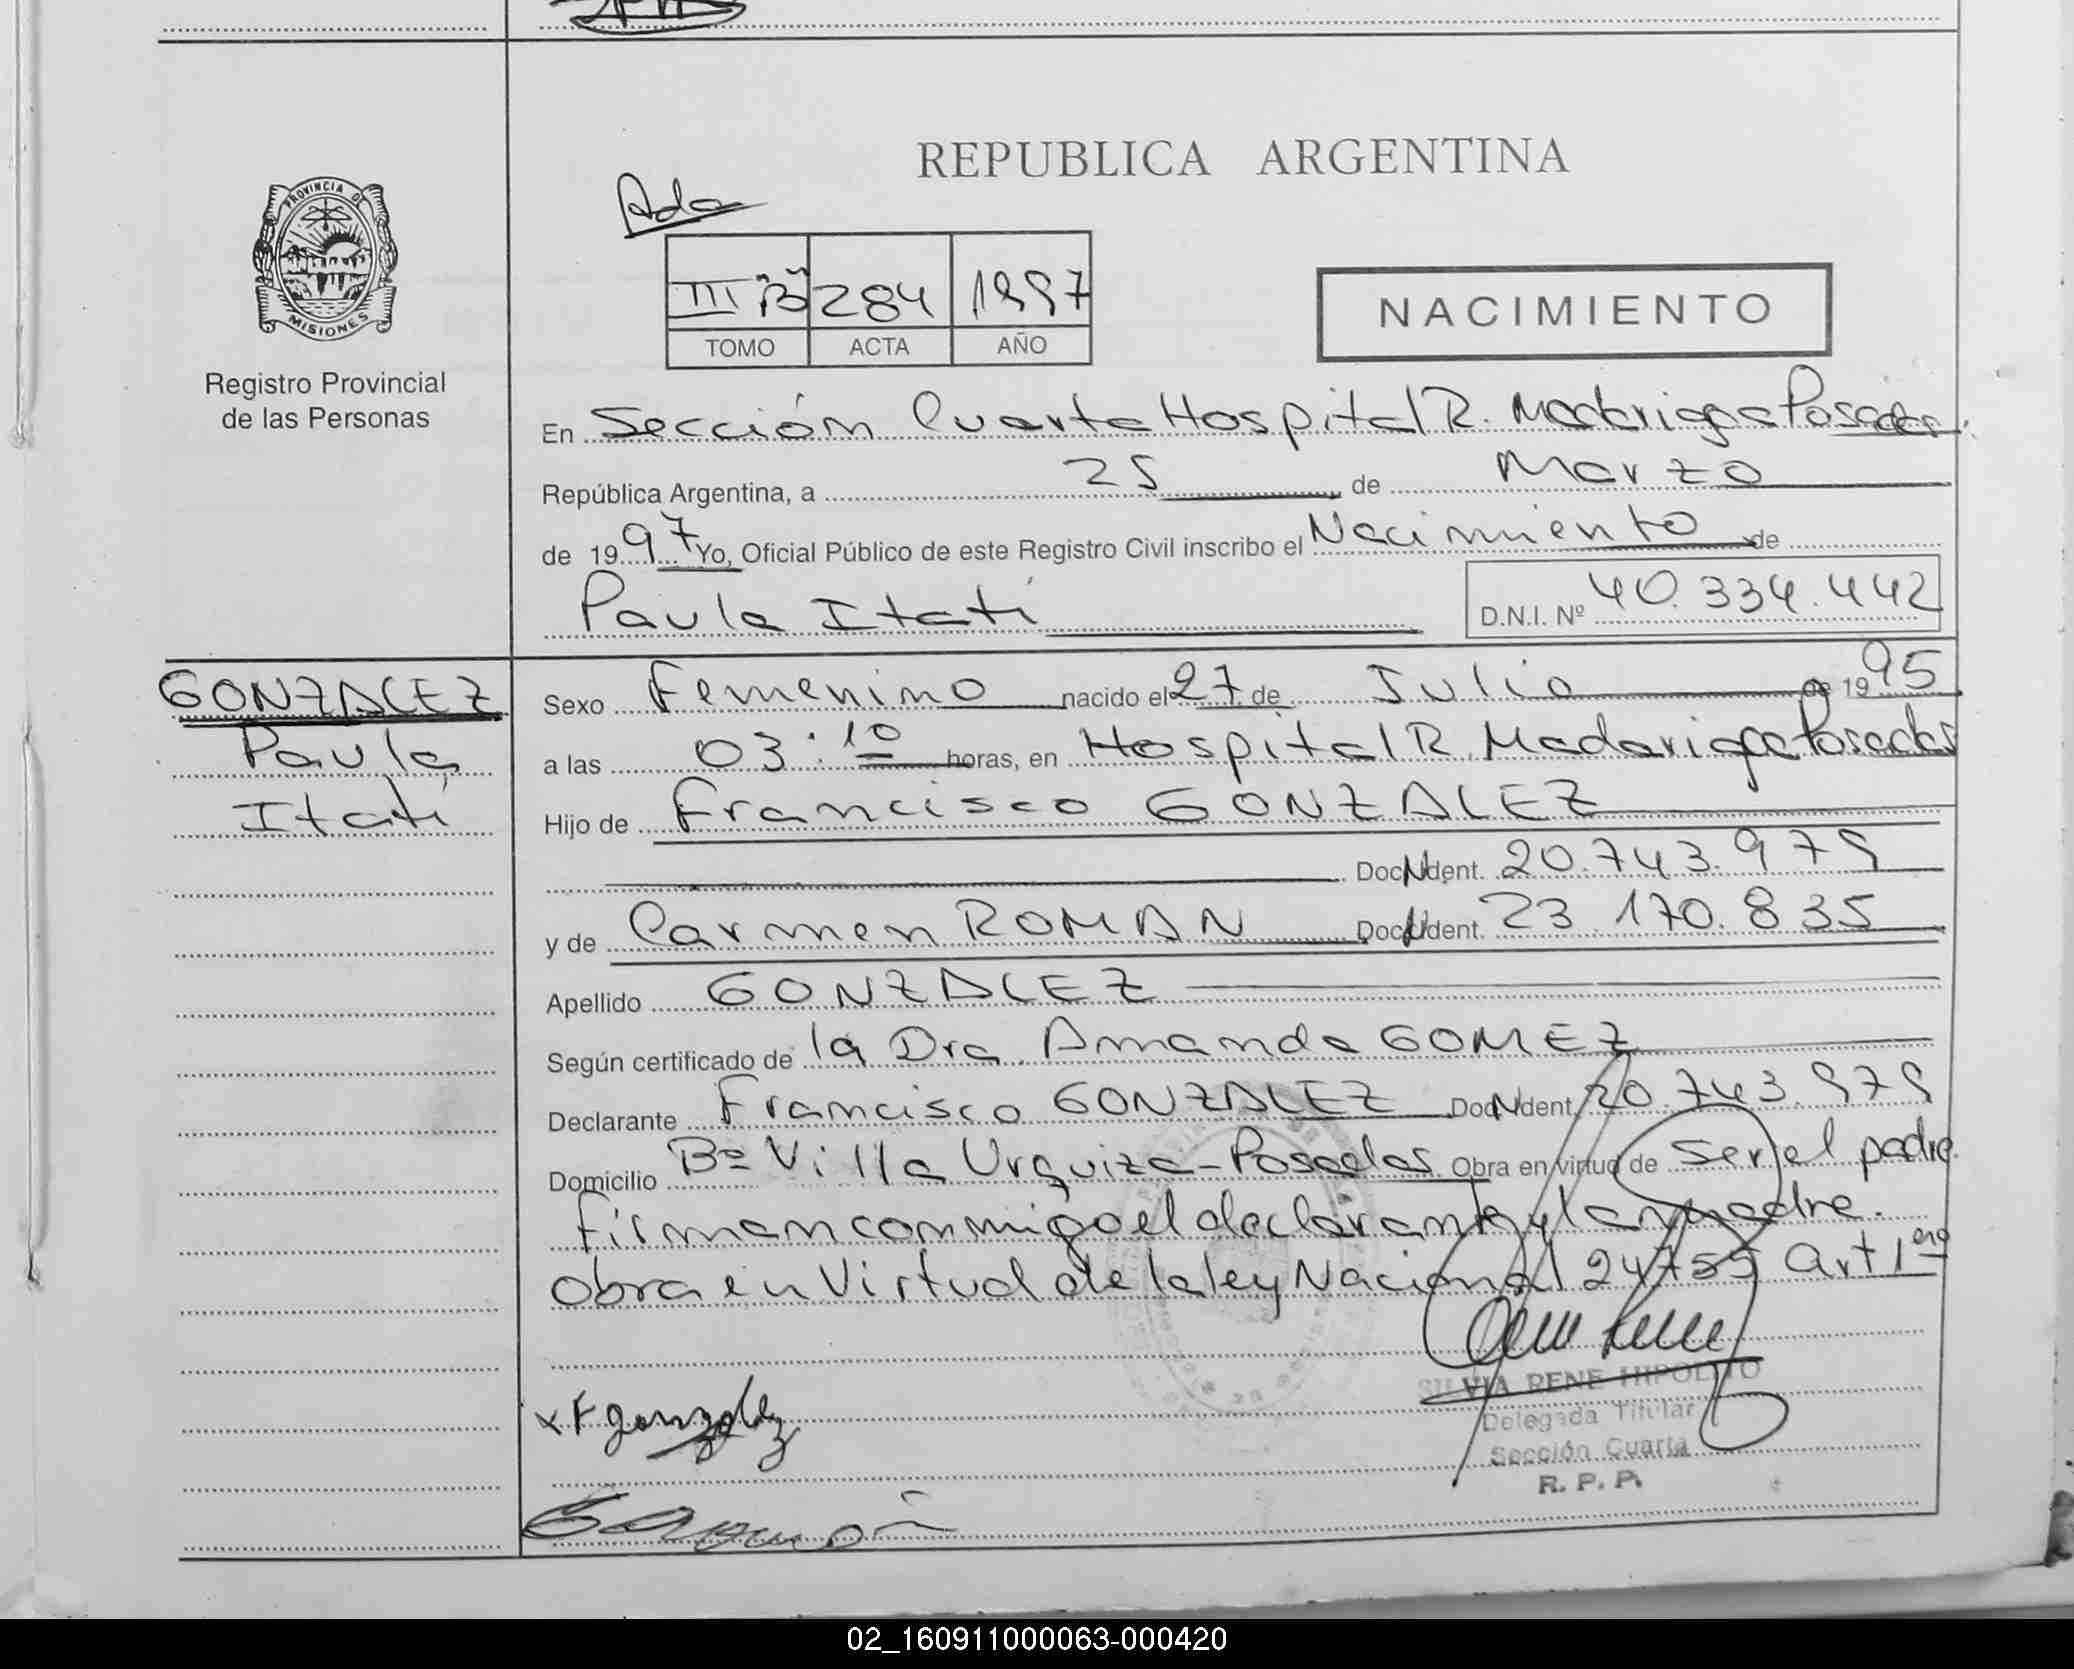 REPUBLICA ARGENTINA
PROVINCIA DE
MISIONES
Registro Provincial
de las Personas
III "B" 284 1997
TOMO ACTA AÑO
NACIMIENTO
En Sección Cuarta Hospital R. Madariaga Posadas.
República Argentina, a 25 de Marzo
de 1997 Yo, Oficial Público de este Registro Civil inscribo el Nacimiento de
Paula Itatí D.N.I. Nº 40.334.442
GONZALEZ
Paula
Itatí
Sexo Femenino nacido el 27 de Julio de 1995
a las 03:10 horas, en Hospital R. Madariaga Posadas
Hijo de Francisco GONZALEZ
Doc. Ident. 20.743.979
y de Carmen ROMAN Doc. Ident. 23.170.835
Apellido GONZALEZ
Según certificado de la Dra. Amanda GOMEZ
Declarante Francisco GONZALEZ Doc. Ident. 20.743.979
Domicilio Bº Villa Urquiza - Posadas Obra en virtud de ser el padre.
Firman conmigo el declarante y la madre.
Obra en Virtud de la ley Nacional 24755 Art 1ero
SILVIA RENE HIPOLITO
Delegada Titular
Sección Cuarta
R. P. P.
x F gonzalez
02_160911000063-000420